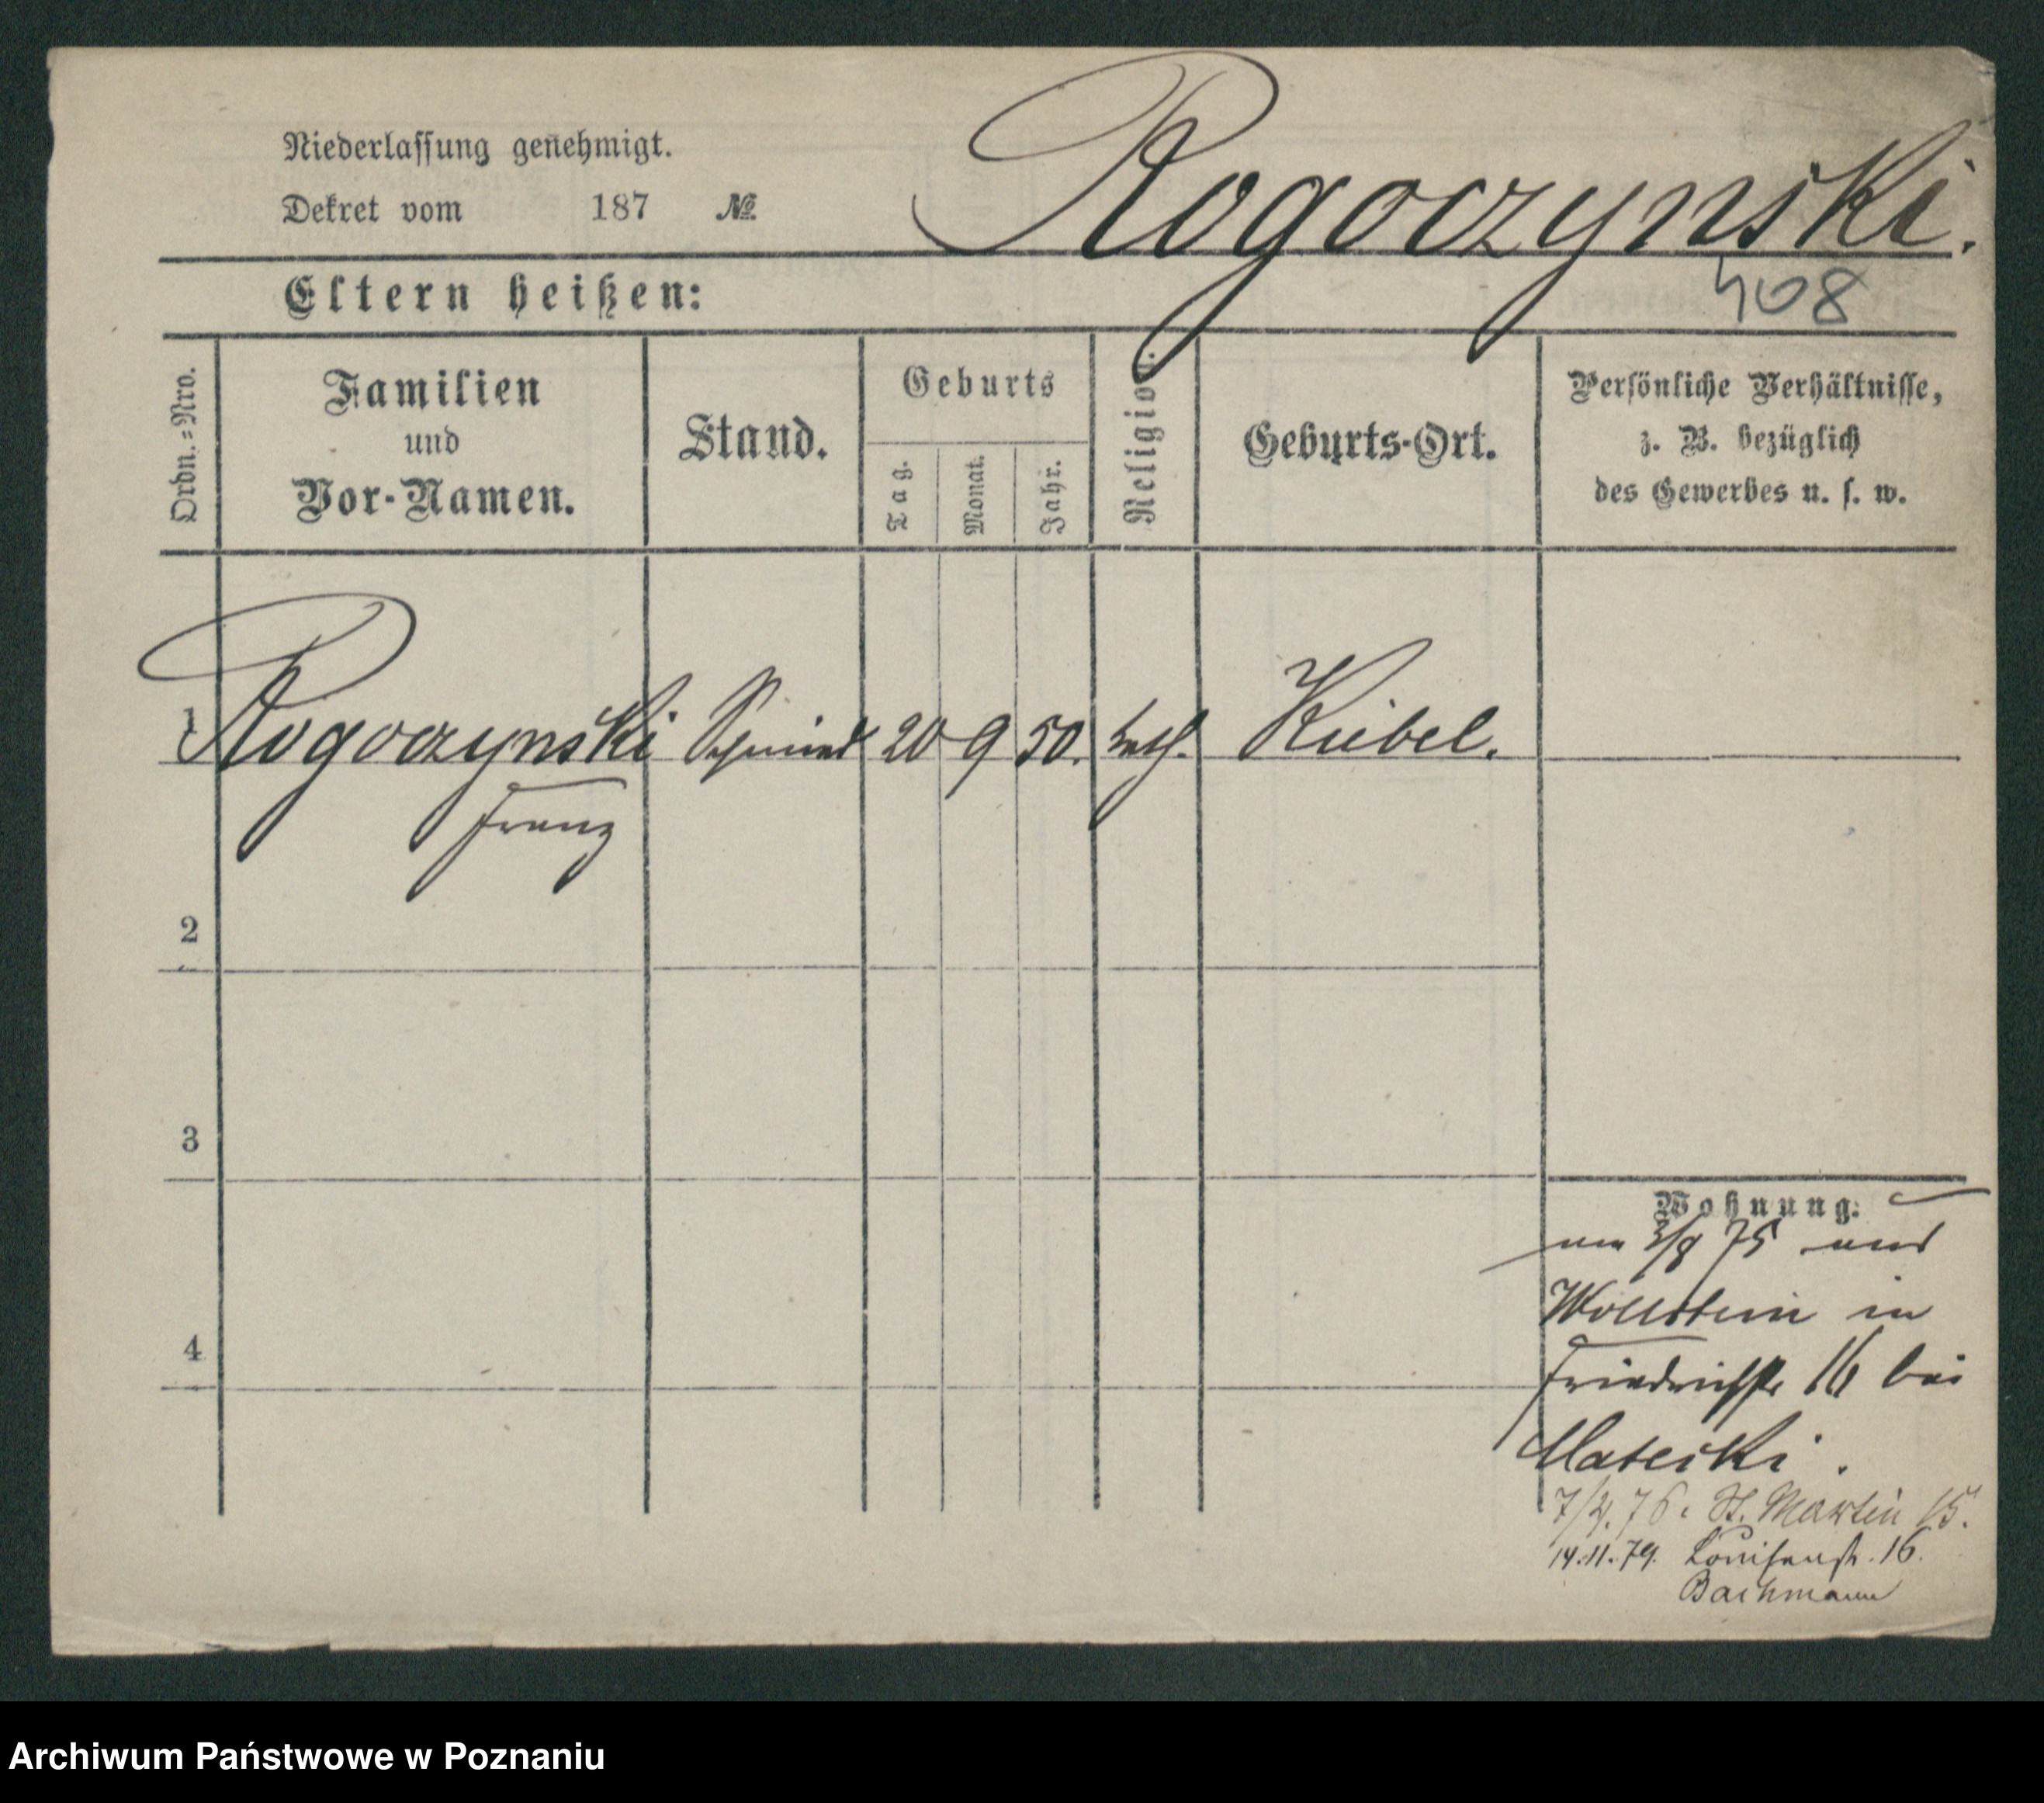 Niederlassung genehmigt.
Dekret vom 187 №
Rogoczynski.
408
Eltern heißen:
Ordn.=Nro.
Familien
und
Vor-Namen.
Stand.
Geburts
Tag.
Monat.
Jahr.
Religion.
Geburts-Ort.
Persönliche Verhältnisse,
z. B. bezüglich
des Gewerbes u. s. w.
1 Rogoczynski Schmied 20 9 50. kath. Kiebel.
Franz
2
3
4
Wohnung.
75 aus
Wollstein in
Friedrichstr 16 bei
Mateski.
76. St. Martin 15.
14.11.79. Louisenstr. 16.
Bachmann
Archiwum Państwowe w Poznaniu